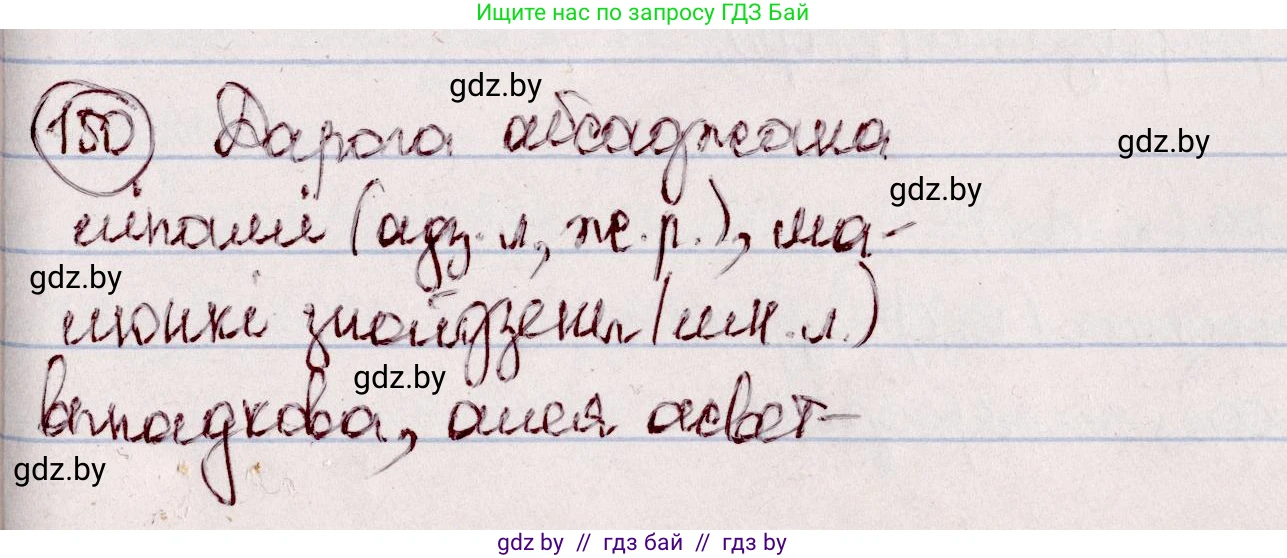 Ищите нас по запросу ГДЗ Бай
gdz.by
150 Дарога абсаджана
gdz.by
gdz.by
ліпамі (адз. л., ж. р.), ма-
gdz.by
люнкі знойдзены (мн. л.)
gdz.by
выпадкова, алея асвет-
gdz.by
gdz by // гдз бай // гдз by